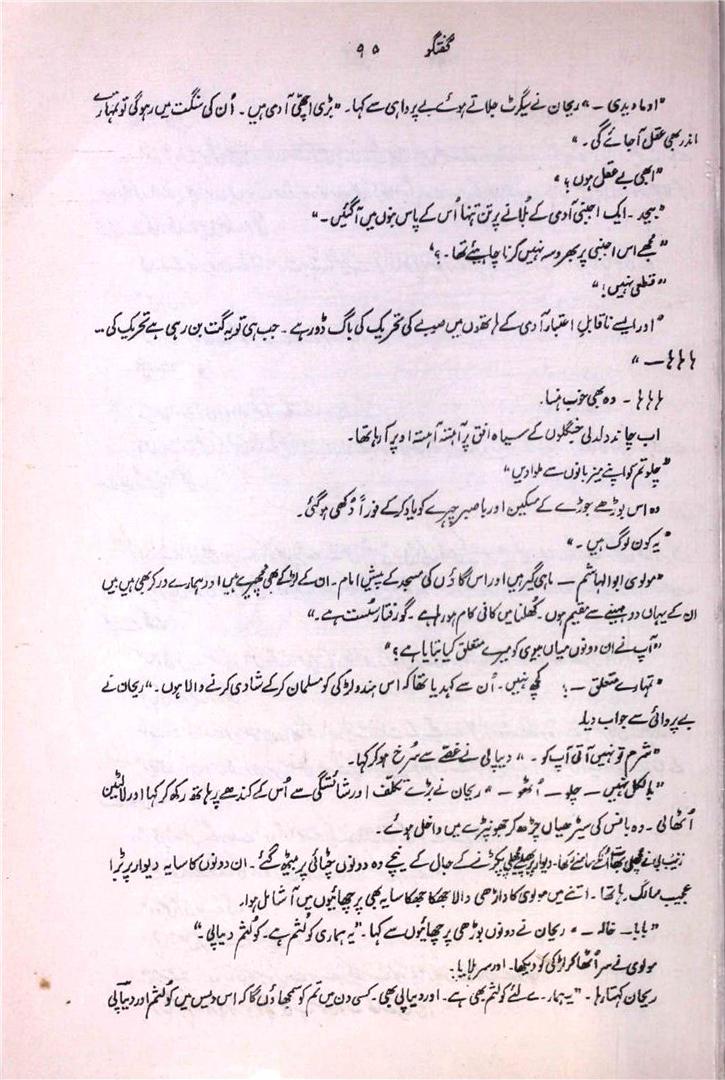 گفتگو ۹۵
"اوما دیدی ۔" ریحان نے سگرٹ جلاتے ہوئے بے پرواہی سے کہا۔ "بڑی اچھی آدمی ہیں۔ اُن کی سنگت میں رہو گی تو تمہارے
اندر بھی عقل آجائے گی۔"
"ابھی بے عقل ہوں؟"
"بیحد۔ ایک اجنبی آدمی کے بُلانے پر تن تنہا اُس کے پاس بنوں میں آگئیں۔"
"مجھے اس اجنبی پر بھروسہ نہیں کرنا چاہیئے تھا۔؟"
"قطعی نہیں!"
"اور ایسے ناقابلِ اعتبار آدمی کے ہاتھوں میں صوبے کی تحریک کی باگ ڈور ہے۔ جب ہی تو یہ گت بن رہی ہے تحریک کی ...
ہا ہا ہا —"
ہا ہا ہا ۔ وہ بھی خوب ہنسا۔
اب چاند دلدلی جنگلوں کے سیاہ افق پر آہستہ آہستہ اوپر آ رہا تھا۔
"چلو تم کو اپنے میزبانوں سے ملوا دیں"
وہ اس بوڑھے جوڑے کے مسکین اور باصبر چہرے کو یاد کر کے فوراً دُکھی ہو گئی۔
"یہ کون لوگ ہیں۔"
"مولوی ابوالہاشم — ماہی گیر ہیں اور اس گاؤں کی مسجد کے پیش امام۔ ان کے لڑکے بھی مچھیرے ہیں اور ہمارے ورکر بھی ہیں میں
ان کے یہاں دو مہینے سے مقیم ہوں۔ کُھلنا میں کافی کام ہو رہا ہے۔ گو رفتار سُست ہے۔"
"آپ نے ان دونوں میاں بیوی کو میرے متعلق کیا بتایا ہے؟"
"تمہارے متعلق —؟ کچھ نہیں۔ اُن سے کہدیا تھا کہ اس ہندو لڑکی کو مسلمان کر کے شادی کرنے والا ہوں۔" ریحان نے
بے پروائی سے جواب دیا۔
"شرم تو نہیں آتی آپ کو۔" دیپالی نے غصّے سے سُرخ ہو کر کہا۔
"بالکل نہیں — چلو — اُٹھو —" ریحان نے بڑے تکلّف اور شائستگی سے اُس کے کندھے پر ہاتھ رکھ کر کہا اور لالٹین
اُٹھالی۔ وہ بانس کی سیڑھیاں چڑھ کر جھونپڑے میں داخل ہوئے۔
زینب بی نے مچھلی بھات اُنکے سامنے رکھا۔ دیوار پر پھیلے مچھلی پکڑنے کے جال کے نیچے وہ دونوں چٹائی پر بیٹھ گئے۔ ان دونوں کا سایہ دیوار پر بڑا
عجیب سا لگ رہا تھا۔ اتنے میں مولوی کا داڑھی والا جُھکا جُھکا سایہ بھی پرچھائیوں میں آ شامل ہوا۔
"بابا۔ خالہ —" ریحان نے دونوں بوڑھی پرچھائیوں سے کہا۔ "یہ ہماری کولُثم ہے۔ کولُثم دیپالی۔"
مولوی نے سر اُٹھا کر لڑکی کو دیکھا۔ اور سر ہلایا۔
ریحان کہتا رہا۔ "یہ ہمارے لئے کولُثم بھی ہے۔ اور دیپالی بھی۔ کسی دن میں تم کو سمجھاؤں گا کہ اس دیس میں کولُثم اور دیپالی